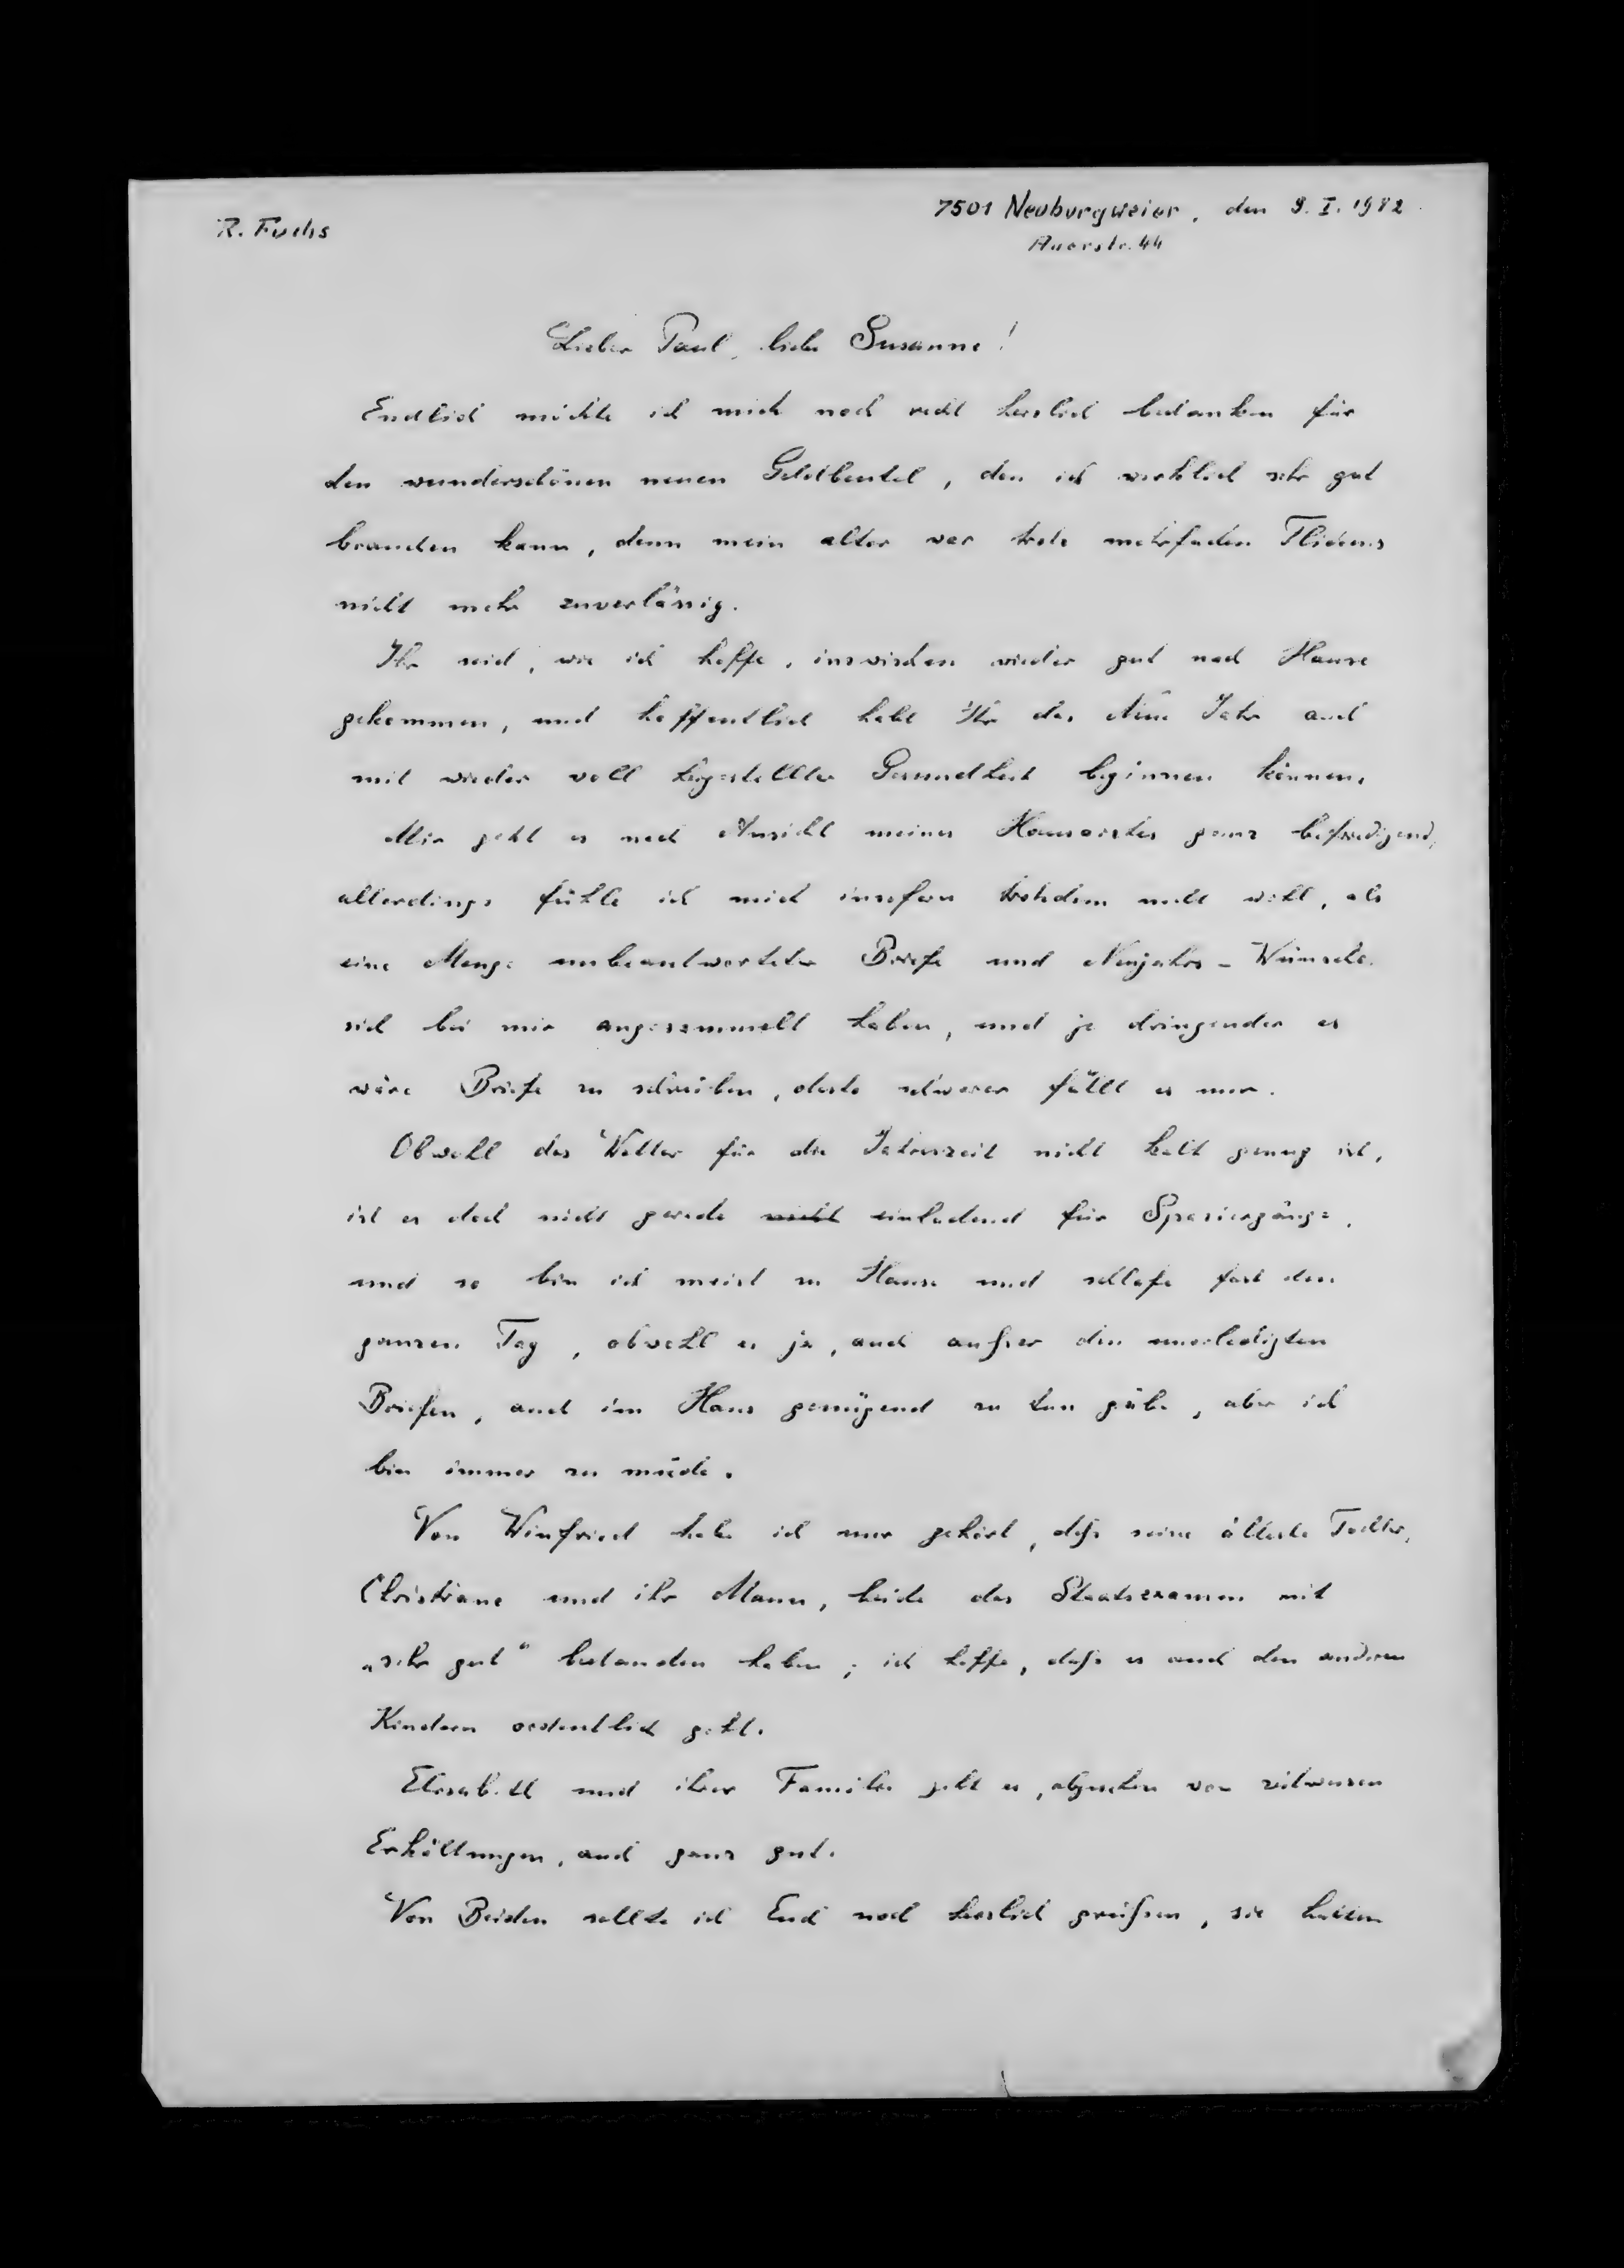 R. Fuchs
7501 Neuburgweier, den 9. I. 1982
Auerstr. 44
Lieber Paul, liebe Susanne!
Endlich möchte ich mich noch recht herzlich bedanken für
den wunderschönen neuen Geldbeutel, den ich wirklich sehr gut
brauchen kann, denn mein alter war trotz mehrfachen Flickens
nicht mehr zuverlässig.
Ihr seid, wie ich hoffe, inzwischen wieder gut nach Hause
gekommen, und hoffentlich habt Ihr das Neue Jahr auch
mit wieder voll hergestellter Gesundheit beginnen können.
Mir geht es nach Ansicht meines Hausarztes ganz befriedigend,
allerdings fühle ich mich insofern trotzdem nicht wohl, als
eine Menge unbeantworteter Briefe und Neujahrs-Wünsche
sich bei mir angesammelt haben, und je dringender es
wäre Briefe zu schreiben, desto schwerer fällt es mir.
Obwohl das Wetter für die Jahreszeit nicht kalt genug ist,
ist es doch nicht gerade nicht einladend für Spaziergänge,
und so bin ich meist zu Hause und schlafe fast den
ganzen Tag, obwohl es ja, auch außer den unerledigten
Briefen, auch im Haus genügend zu tun gäbe, aber ich
bin immer zu müde.
Von Winfried habe ich nur gehört, daß seine älteste Tochter,
Christiane und ihr Mann, beide das Staatsexamen mit
„sehr gut" bestanden haben; ich hoffe, daß es auch den anderen
Kindern ordentlich geht.
Elisabeth und ihrer Familie geht es, abgesehen von zeitweisen
Erkältungen, auch ganz gut.
Von Beiden sollte ich Euch noch herzlich grüßen, sie hatten